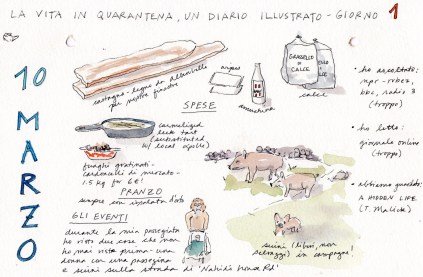 LA VITA IN QUARANTENA, UN DIARIO ILLUSTRATO - GIORNO 1
10 MARZO
castagno - legno da Albarbello
per nostre finestre
acqua
amuchina
GRASSELLO DI CALCE
calce
SPESE
caramelized
leek tart
(substituted
w/ local cipolle)
funghi gratinati -
cardoncelli di murcato -
1.5 kg for 6€!
PRANZO
sempre con insalata d'orto
GLI EVENTI
durante la mia passegiata
ho visto due cose che non
ho mai visto prima - una
donna con una
e suini sulla strada di 'Nahidi house Rd'
suini (liberi, non
selvaggi) in campagna!
• ho ascoltato:
npr - rbez,
bbc, radio 3
(troppo)
• ho letto:
giornale online
(troppo)
• abbiamo guardato:
A HIDDEN LIFE
(T. Malick)